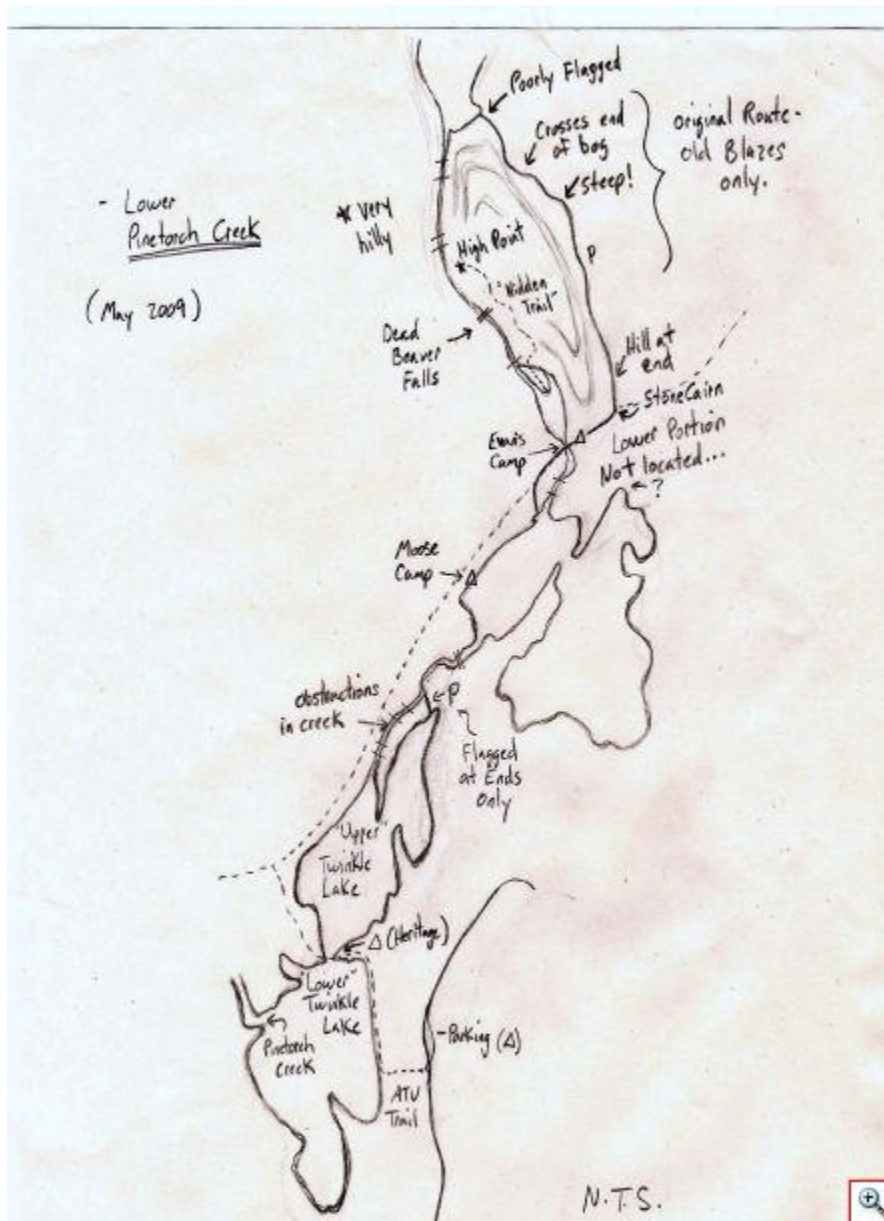 Poorly Flagged
Crosses end
of bog
Steep!
original Route-
old Blazes
only.
- Lower
Pinetorch Creek
(May 2009)
* Very
hilly
High Point
*
"Hidden
Trail"
P
Dead
Beaver
Falls
Hill at
end
Stone Cairn
Lower Portion
Not located...
?
Camp
Moose
Camp
obstructions
in creek
P
Flagged
at Ends
Only
"Upper"
Twinkle
Lake
Δ (Heritage)
"Lower"
Twinkle
Lake
Pinetorch
Creek
-Parking (Δ)
ATV
Trail
N.T.S.